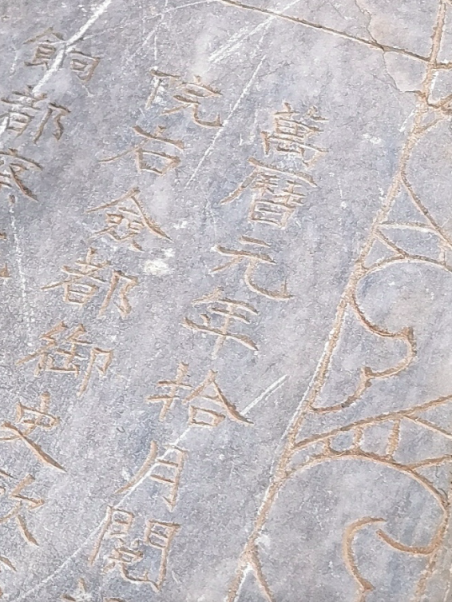 萬曆元年拾月閱
院右僉都御史
餉都察